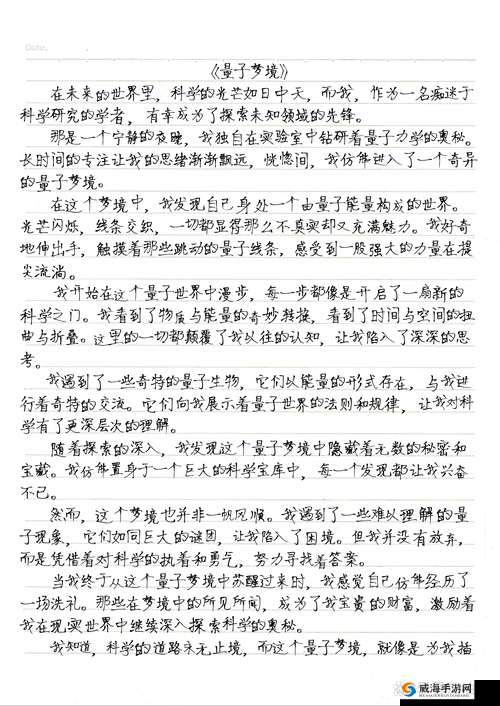 Date.
《量子梦境》
在未来的世界里，科学的光芒如日中天，而我，作为一名痴迷于
科学研究的学者，有幸成为了探索未知领域的先锋。
那是一个宁静的夜晚，我独自在实验室中钻研着量子力学的奥秘。
长时间的专注让我的思绪渐渐飘远，恍惚间，我仿佛进入了一个奇异
的量子梦境。
在这个梦境中，我发现自己身处一个由量子能量构成的世界。
光芒闪烁，线条交织，一切都显得那么不真实却又充满魅力。我好奇
地伸出手，触摸着那些跳动的量子线条，感受到一股强大的力量在指
尖流淌。
我开始在这个量子世界中漫步，每一步都像是开启了一扇新的
科学之门。我看到了物质与能量的奇妙转换，看到了时间与空间的扭
曲与折叠。这里的一切都颠覆了我以往的认知，让我陷入了深深的思
考。
我遇到了一些奇特的量子生物，它们以能量的形式存在，与我进
行着奇特的交流。它们向我展示着量子世界的法则和规律，让我对科
学有了更深层次的理解。
随着探索的深入，我发现这个量子梦境中隐藏着无数的秘密和
宝藏。我仿佛置身于一个巨大的科学宝库中，每一个发现都让我兴奋
不已。
然而，这个梦境也并非一帆风顺。我遇到了一些难以理解的量
子现象，它们如同巨大的谜团，让我陷入了困境。但我并没有放弃，
而是凭借着对科学的执着和勇气，努力寻找着答案。
当我终于从这个量子梦境中苏醒过来时，我感觉自己仿佛经历了
一场洗礼。那些在梦境中的所见所闻，成为了我宝贵的财富，激励着
我在现实世界中继续深入探索科学的奥秘。
我知道，科学的道路永无止境，而这个量子梦境，就像是为我指
威海手游网